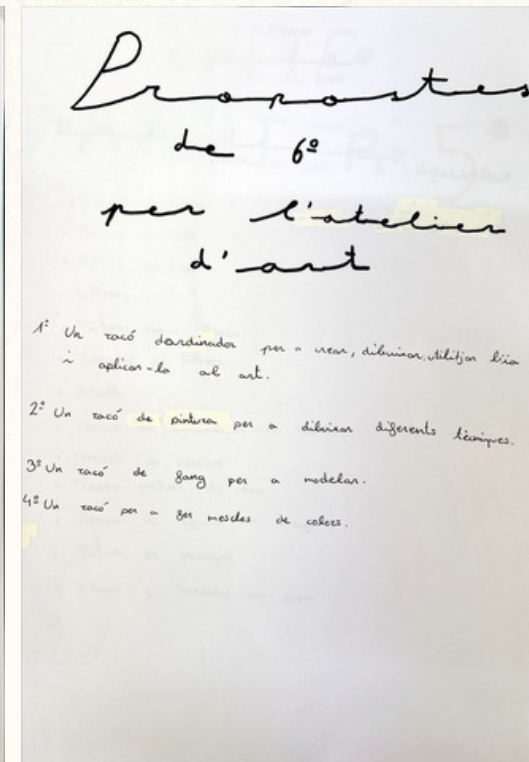 Propostes
de 6º
per l'atelier
d'art
1º Un racó dordinador per a crear, dibuixar, utilitzar l'ia
i aplicar-la al art.
2º Un racó de pintura per a dibuixar diferents tècniques.
3º Un racó de fang per a modelar.
4º Un racó per a fer mescles de colors.